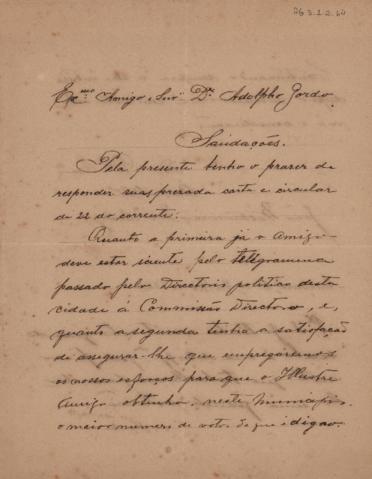 Ex.mo Amigo e Snr. Dr. Adolpho Gordo.
Saudações.
Pela presente tenho o prazer de
responder suas presada carta e circular
de 22 do corrente.
Quanto a primeira já o Amigo
deve estar sciente pelo telegramma
passado pelo Directorio politico desta
cidade á Commissão Directora, e,
quanto a segunda tenho a satisfação
de assegurar-lhe que empregaremos
os nossos esforços para que o Illustre
Amigo obtenha, neste Municipio,
o maior numero de votos de que é digno.